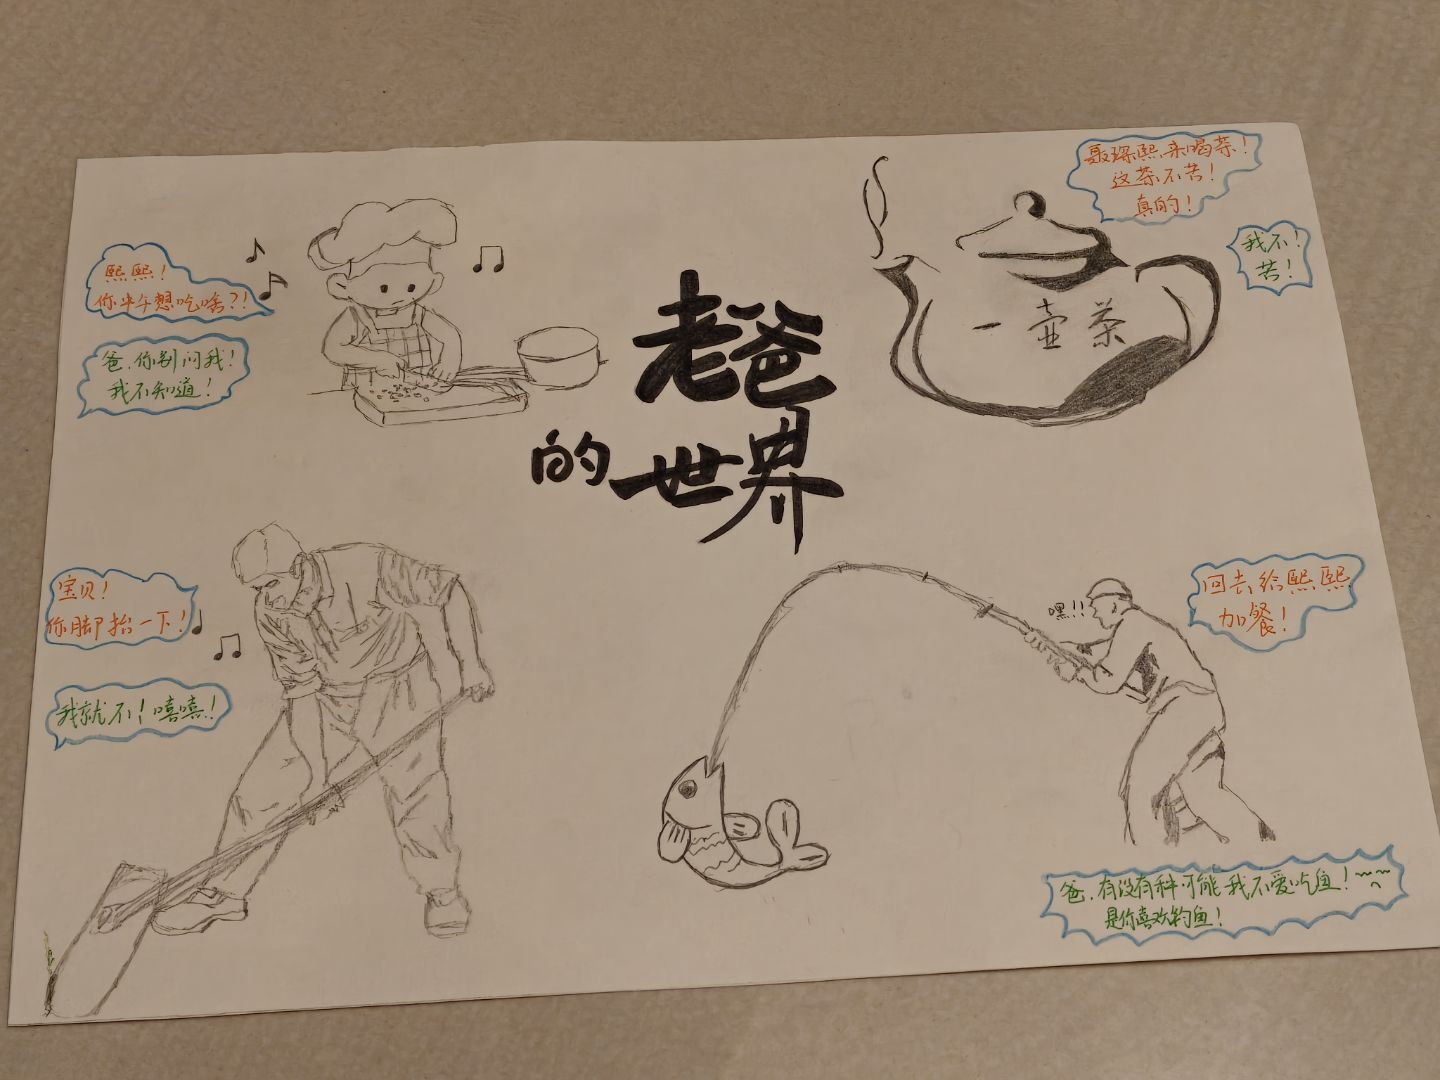 熙熙!
你中午想吃啥?!
爸,你别问我!
我不知道!
老爸
的世界
聂琛熙,来喝茶!
这茶不苦!
真的!
我不!
苦!
一壶茶
宝贝!
你脚抬一下!
我就不!嘻嘻!
嘿!!
回去给熙熙
加餐!
爸,有没有种可能我不爱吃鱼!
是你喜欢钓鱼!